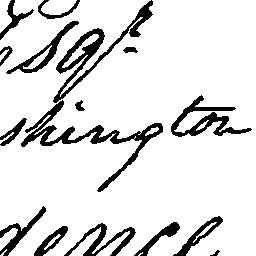 Esqr.
shington
dence